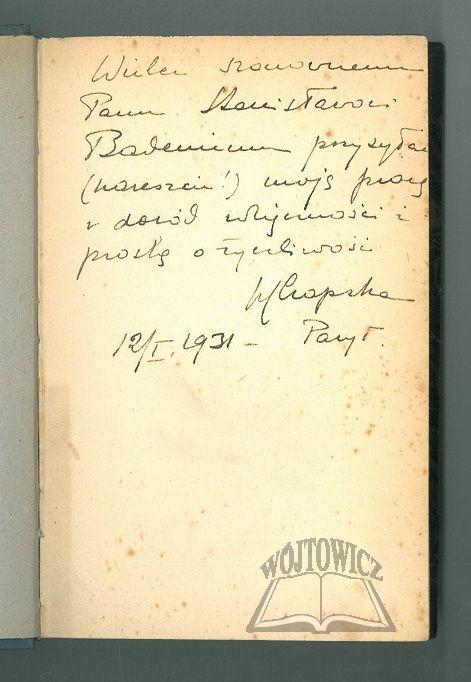 Wielce szanownemu
Panu Stanisławowi
Badeniemu przysyłam
(nareszcie!) moją pracę
w dowód wdzięczności i
proszę o życzliwość
Czapska
12/I. 1931 – Paryż.
WÓJTOWICZ